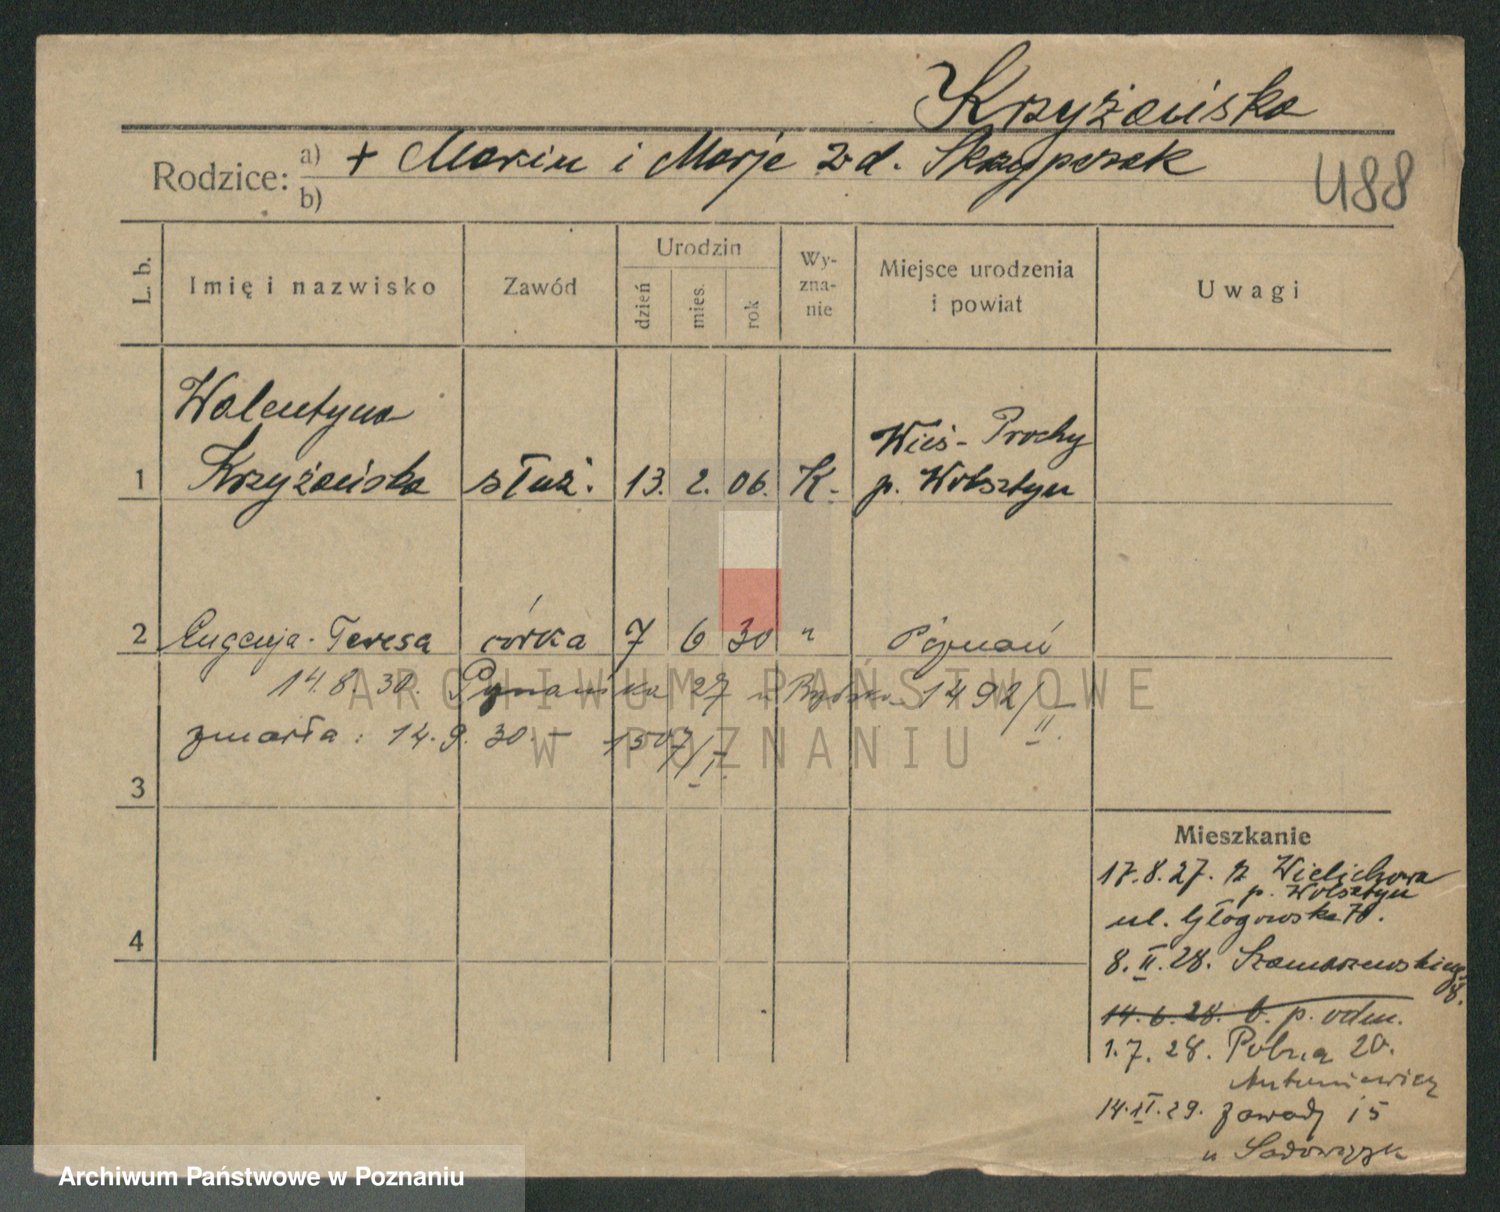 Krzyżańska
Rodzice: a) + Marcin i Marje zd. Skrzypczak
b)
488
L. b.
Imię i nazwisko
Zawód
Urodzin
dzień
mies.
rok
Wy-
zna-
nie
Miejsce urodzenia
i powiat
Uwagi
Walentyna
1 Krzyżańska służ. 13. 2. 06. K.
Wieś - Prochy
p. Wolsztyn
2 Eugenja - Teresa córka 7 6 30 " Poznań
14.8.30. 27 u 1492/II
zmarła: 14.9.30. - 1507/I
3
4
Mieszkanie
17.8.27. z Wielichowa
p. Wolsztyn
ul. Głogowska 70.
8.II.28. Szamarzewskiego
8.
14.6.28. b. p. odm.
1.7.28. Polna 20.
Antoniewicz
14.II.29. Zawady 15
u
ARCHIWUM PAŃSTWOWE
W POZNANIU
Archiwum Państwowe w Poznaniu